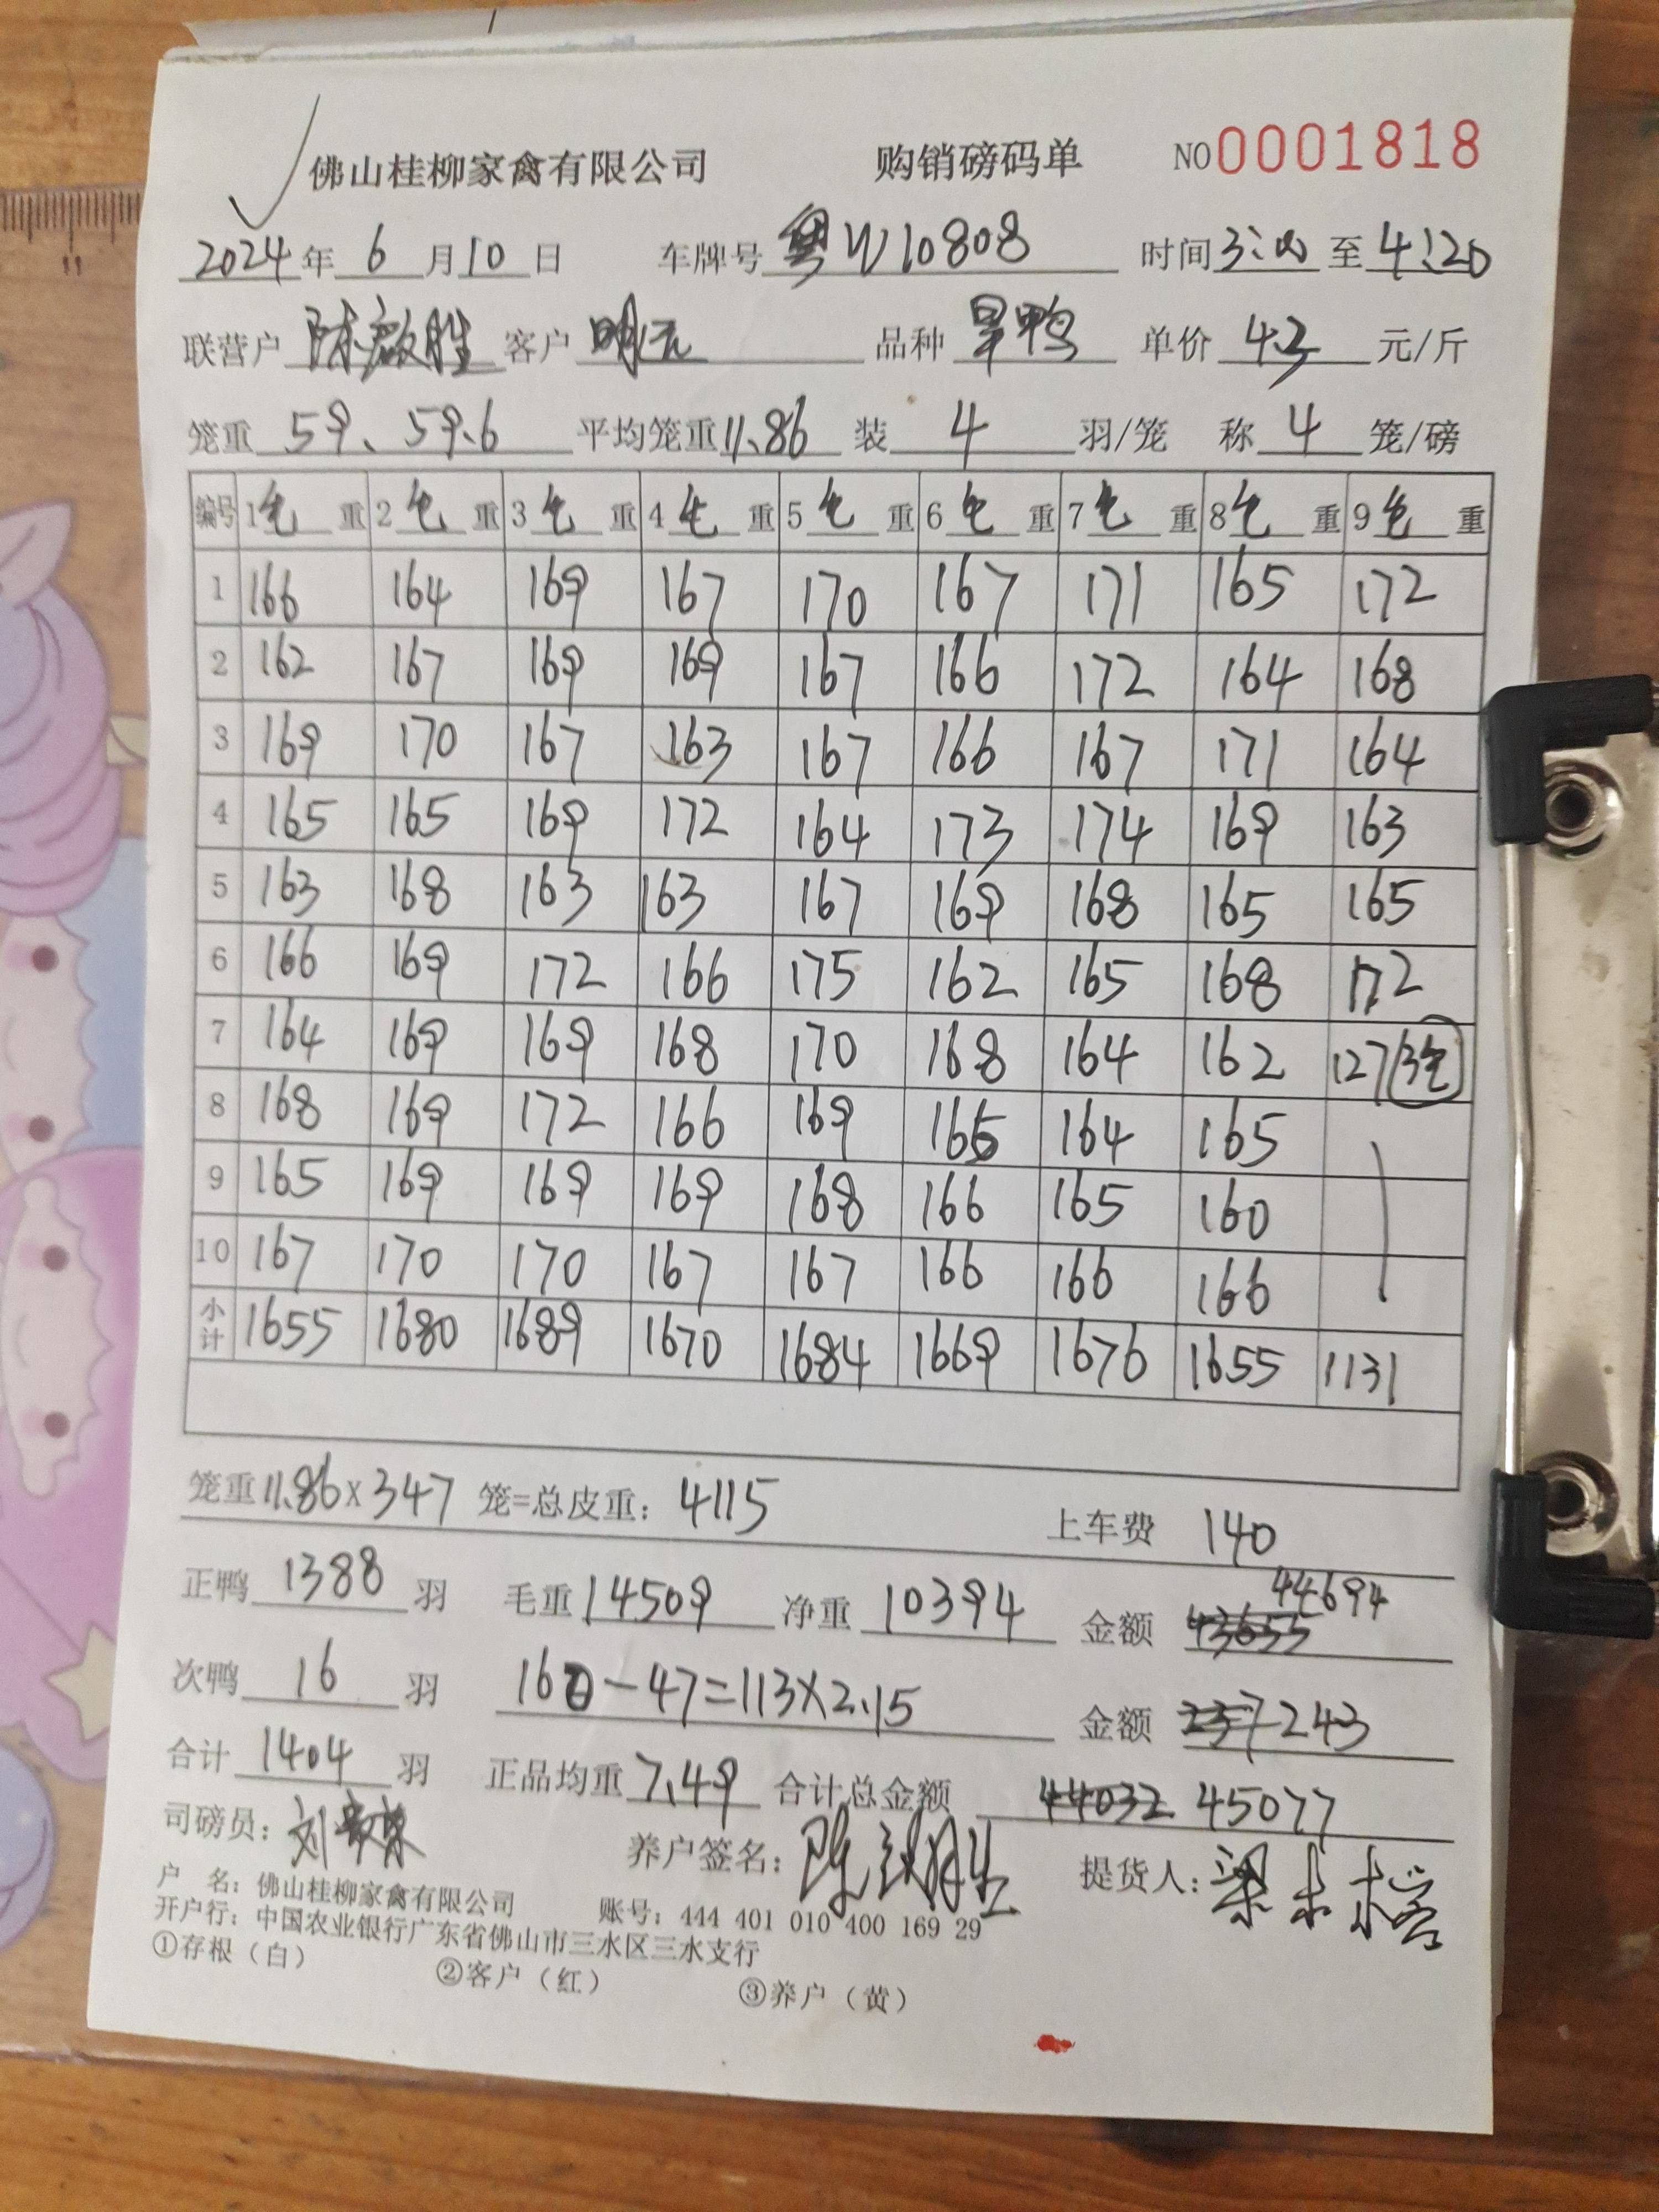 佛山桂柳家禽有限公司 购销磅码单 NO0001818
2024年6月10日 车牌号粤W10808 时间3:00至4:20
联营户 陈啟胜 客户 明元 品种 旱鸭 单价 4.3 元/斤
笼重 59、59.6 平均笼重11.86 装 4 羽/笼 称 4 笼/磅
编号 1毛重 2毛重 3毛重 4毛重 5毛重 6毛重 7毛重 8毛重 9毛重
1 166 164 169 167 170 167 171 165 172
2 162 167 169 169 167 166 172 164 168
3 169 170 167 163 167 166 167 171 164
4 165 165 169 172 164 173 174 169 163
5 163 168 163 163 167 169 168 165 165
6 166 169 172 166 175 162 165 168 172
7 164 169 169 168 170 168 164 162 127(3笼)
8 168 169 172 166 169 166 164 165
9 165 169 169 169 168 166 165 160
10 167 170 170 167 167 166 166 166
小计 1655 1680 1689 1670 1684 1669 1676 1655 1131
笼重11.86×347 笼=总皮重: 4115 上车费 140
正鸭 1388 羽 毛重14509 净重 10394 金额 43655 44694
次鸭 16 羽 160-47=113×2.15 金额 237 243
合计 1404 羽 正品均重7.49 合计总金额 44032 45077
司磅员: 刘 养户签名: 陈 胜 提货人: 梁木
户 名: 佛山桂柳家禽有限公司 账号: 444 401 010 400 169 29
开户行: 中国农业银行广东省佛山市三水区三水支行
①存根(白) ②客户(红) ③养户(黄)